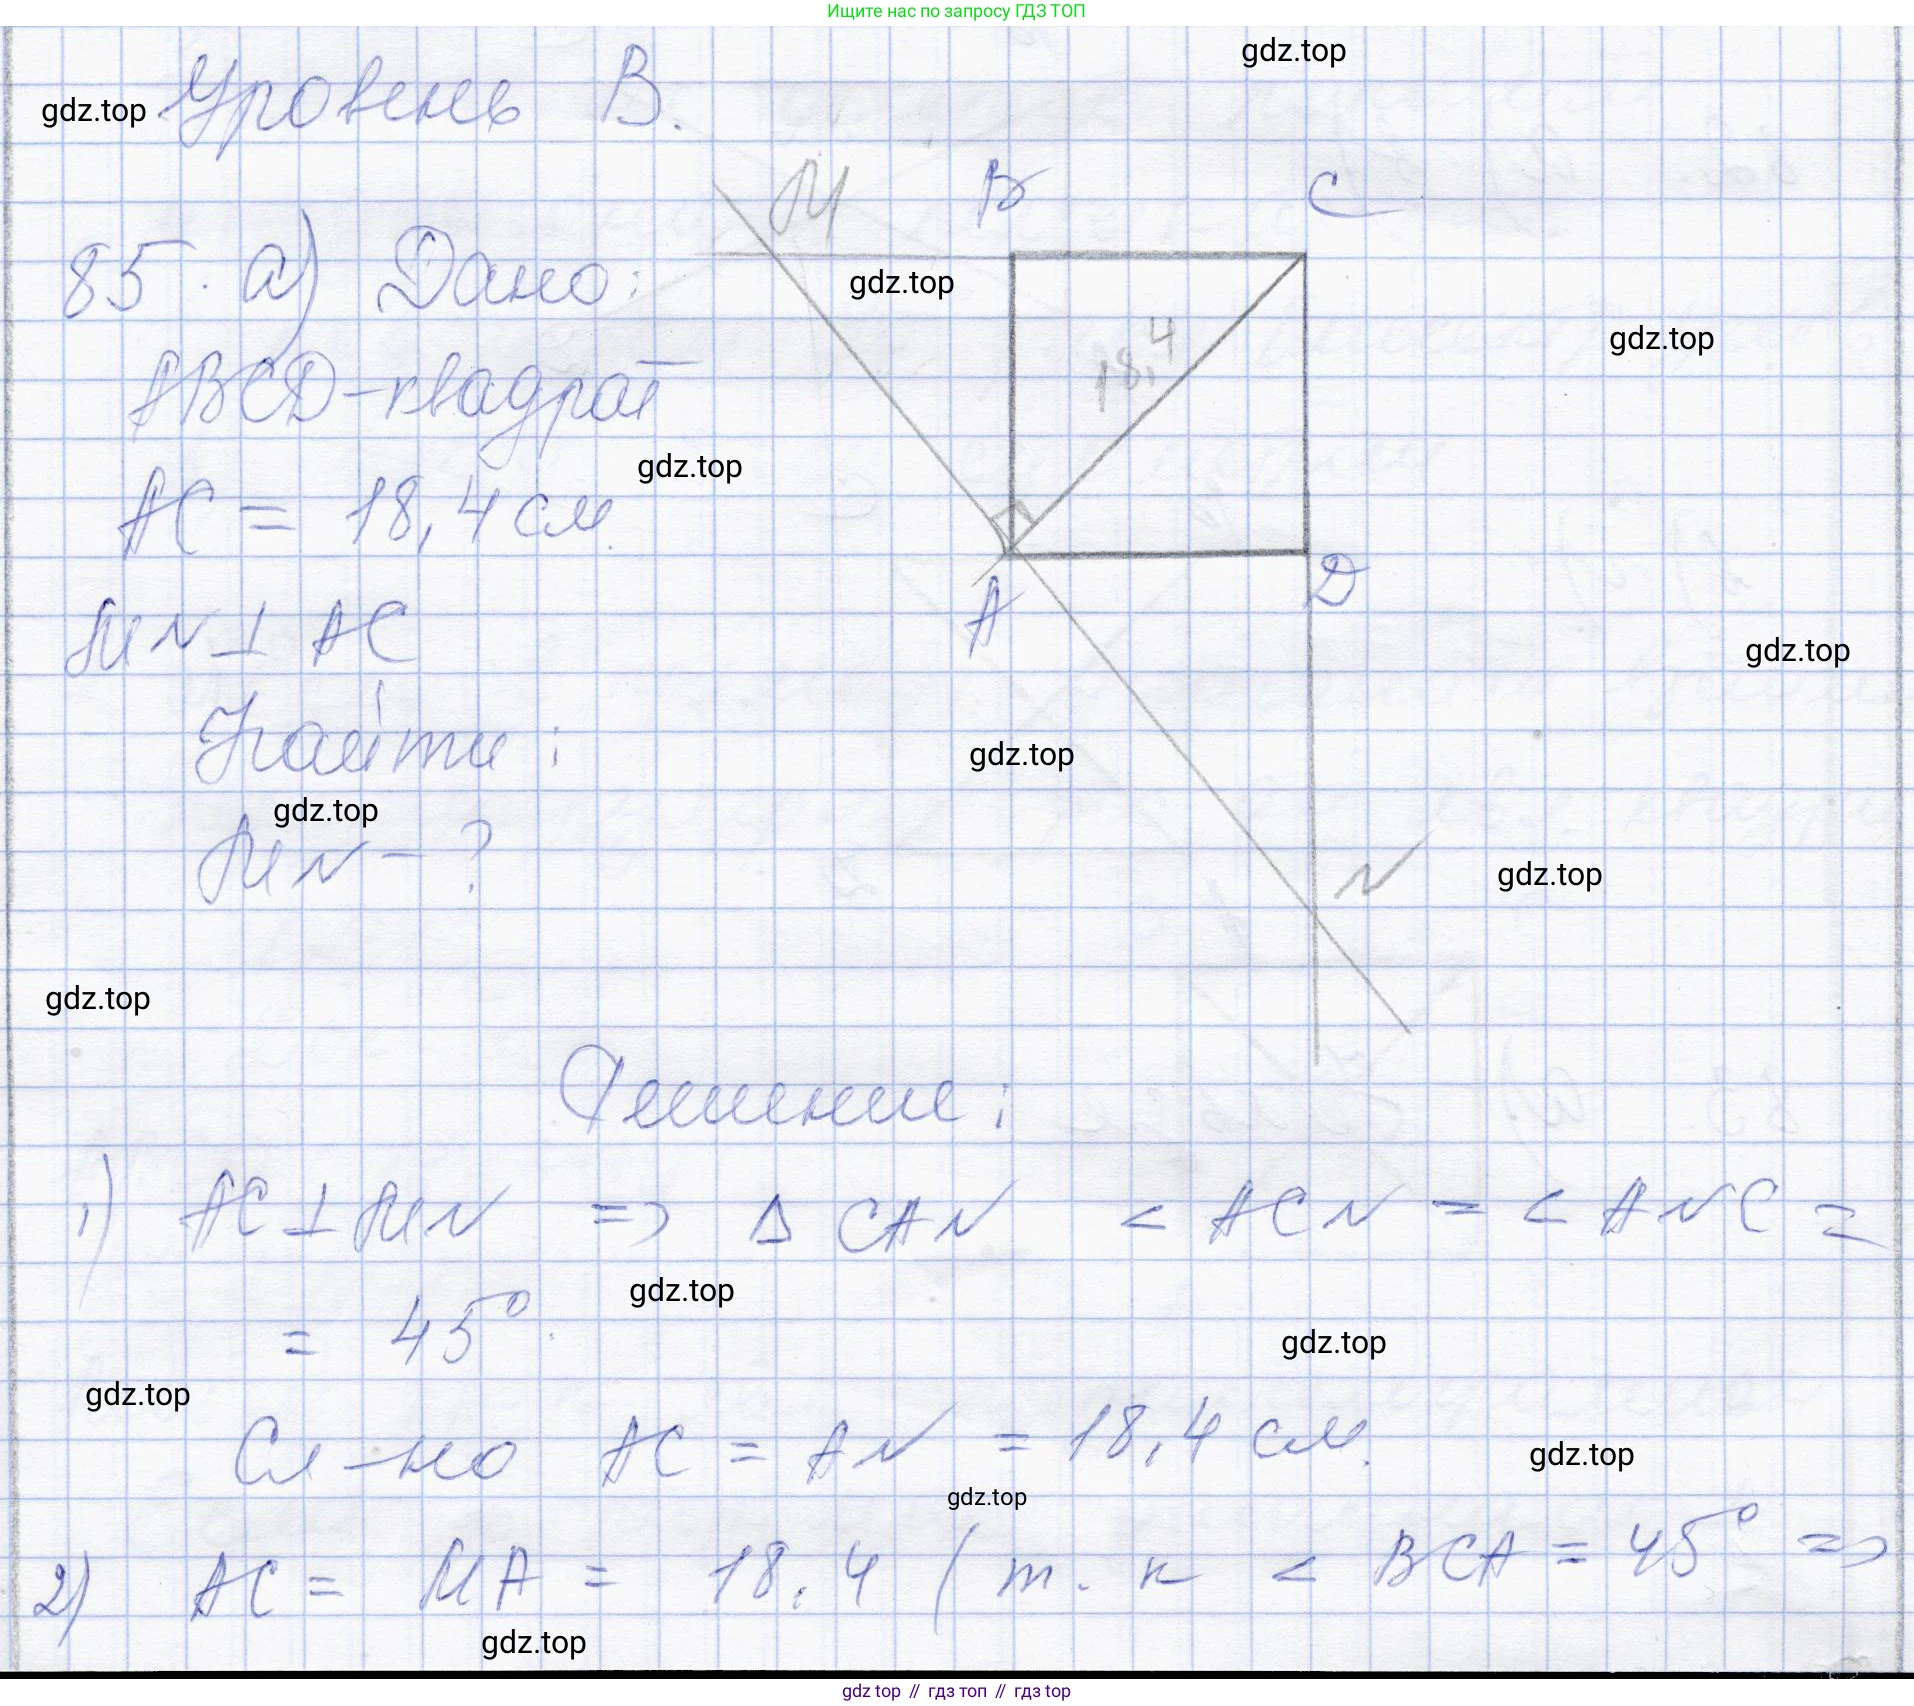 Ищите нас по запросу ГДЗ ТОП
gdz.top
gdz.top Уровень В.
М В С
85. а) Дано:
gdz.top
gdz.top
18,4
ABCD-квадрат
gdz.top
AC = 18,4 см.
А D
MN ⊥ AC
gdz.top
Найти:
gdz.top
gdz.top
MN - ?
N gdz.top
gdz.top
Решение:
1) AC ⊥ MN => Δ CAN < ACN = < ANC =
gdz.top
= 45°.
gdz.top
gdz.top
Сл-но AC = AN = 18,4 см.
gdz.top
gdz.top
2) AC = MA = 18,4 (т. к < BCA = 45° =>
gdz.top
gdz top // гдз топ // гдз top